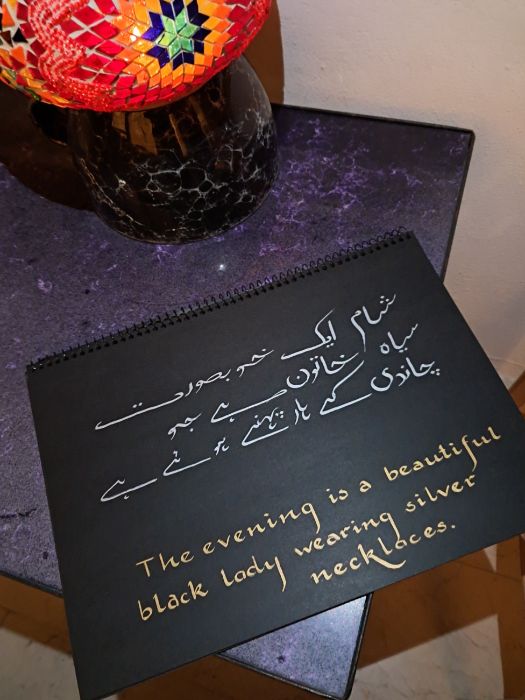 شام ایک خوبصورت
سیاہ خاتون ہے جو
چاندی کے ہار پہنے ہوئے ہے
The evening is a beautiful
black lady wearing silver
necklaces.